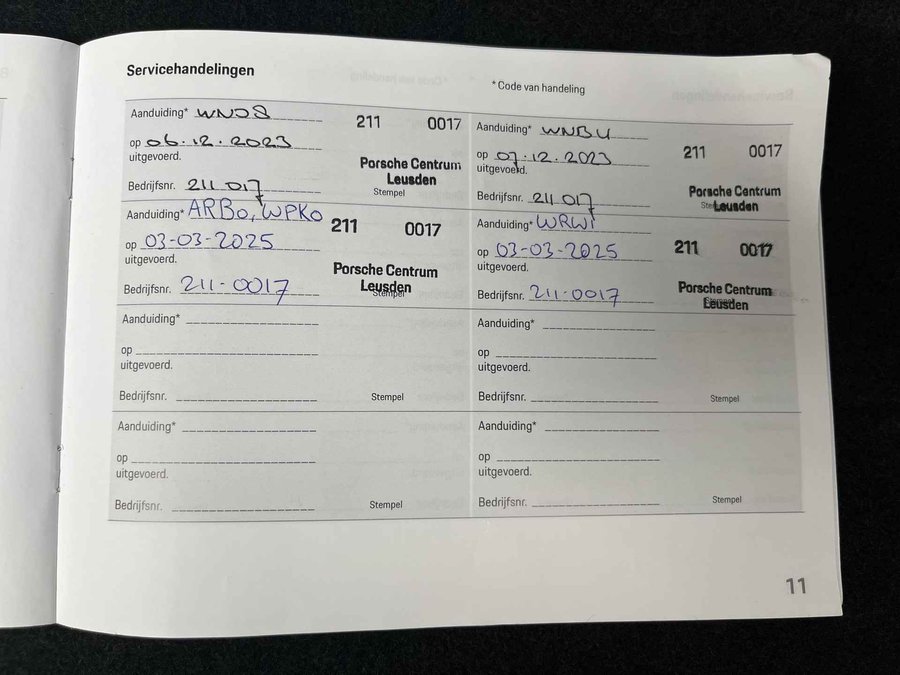 Servicehandelingen
* Code van handeling
Aanduiding* WNJ8
211 0017
op 06.12.2023
uitgevoerd.
Porsche Centrum
Leusden
Bedrijfsnr. 211 017
Stempel
Aanduiding* WNBU
211 0017
op 07.12.2023
uitgevoerd.
Porsche Centrum
Leusden
Bedrijfsnr. 211 017
Stempel
Aanduiding* ARB0, WPK0
211 0017
op 03-03-2025
uitgevoerd.
Porsche Centrum
Leusden
Bedrijfsnr. 211-0017
Stempel
Aanduiding* WRWI
211 0017
op 03-03-2025
uitgevoerd.
Porsche Centrum
Leusden
Bedrijfsnr. 211-0017
Stempel
Aanduiding*
op
uitgevoerd.
Bedrijfsnr.
Stempel
Aanduiding*
op
uitgevoerd.
Bedrijfsnr.
Stempel
Aanduiding*
op
uitgevoerd.
Bedrijfsnr.
Stempel
Aanduiding*
op
uitgevoerd.
Bedrijfsnr.
Stempel
11